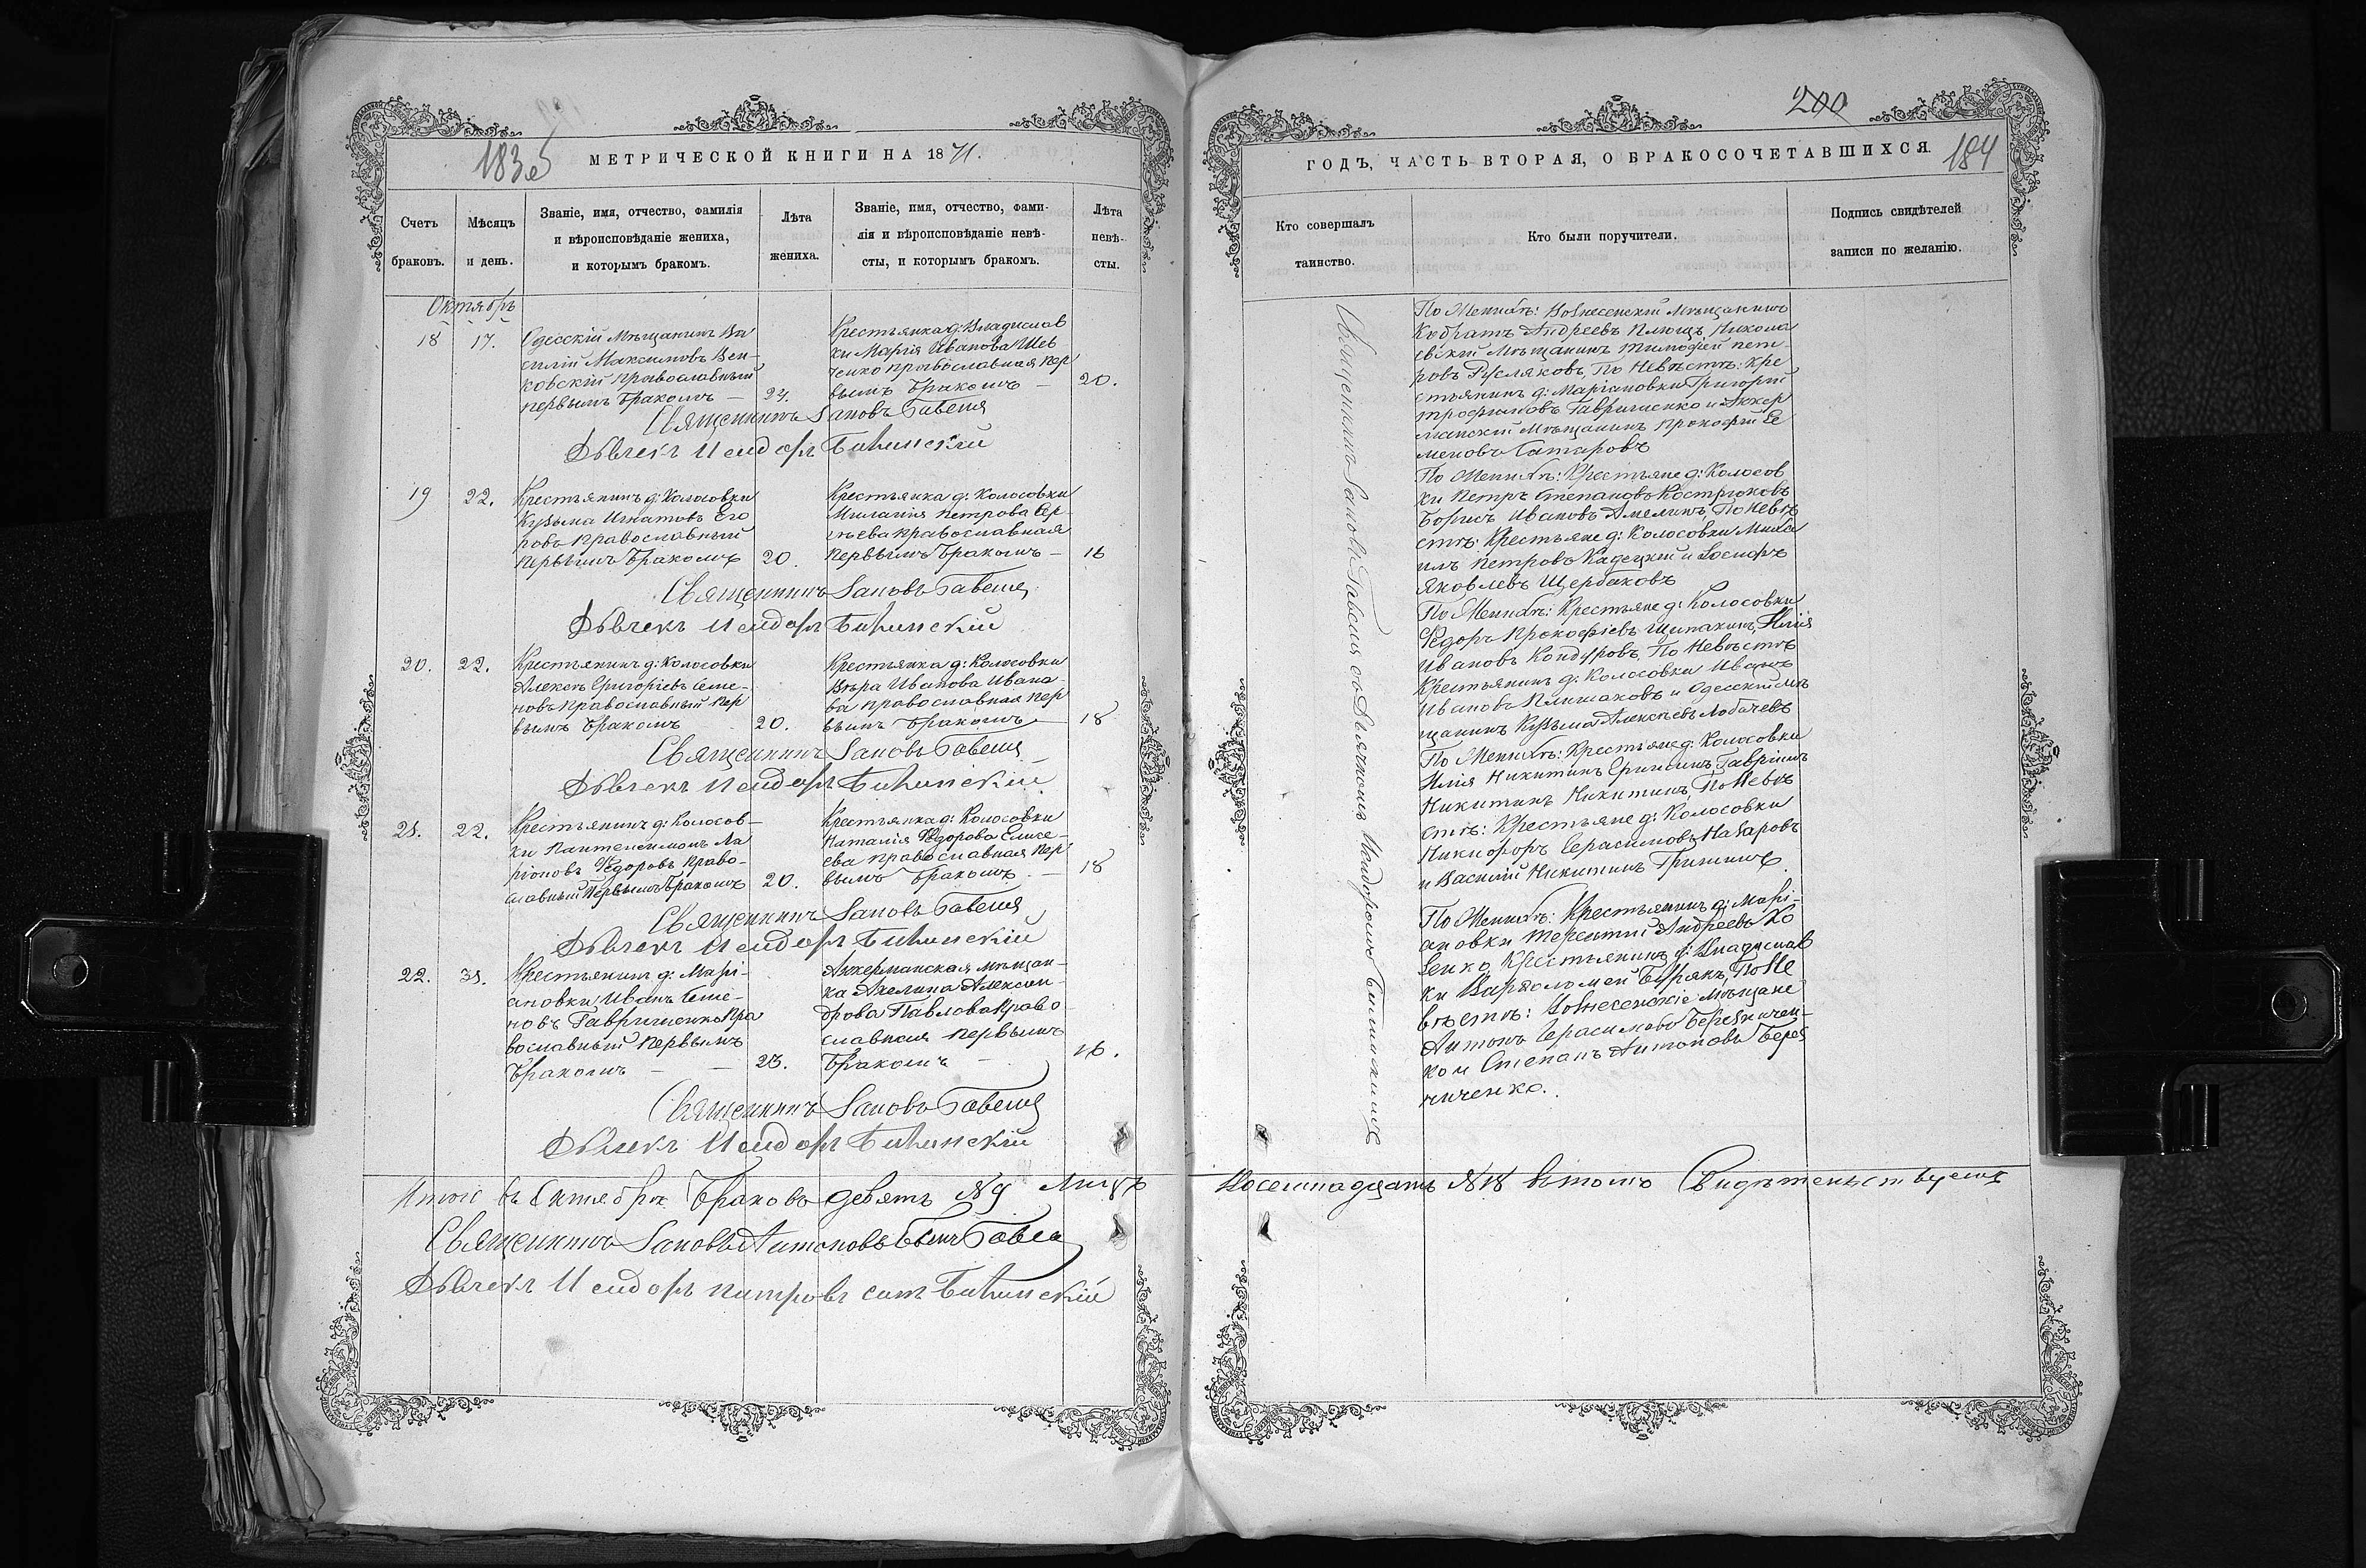 183 об
МЕТРИЧЕСКОЙ КНИГИ НА 1871.
Счетъ браковъ.
Мѣсяцъ и день.
Званіе, имя, отчество, фамилія
и вѣроисповѣданіе жениха,
и которымъ бракомъ.
Лѣта
жениха.
Званіе, имя, отчество, фами-
лія и вѣроисповѣданіе невѣ-
сты, и которымъ бракомъ.
Лѣта
невѣ-
сты.
Октябрь
18
17.
Одесскій Мѣщанинъ Ва
силій Максимовъ
ковскій православный
первымъ бракомъ —
24.
Крестьянка д: Владислав
ки Марія Иванова Шев
ченко православная пер
вымъ бракомъ —
20.
Священникъ Іаковъ Гавеля
Дьячекъ Исидоръ
19
22.
Крестьянинъ д: Колосовки
Кузьма Игнатовъ Его
ровъ православный
первымъ бракомъ
20.
Крестьянка д: Колосовки
Миланія Петрова Сер
гѣева православная
первымъ бракомъ —
16
Священникъ Іаковъ Гавеля
Дьячекъ Исидоръ
20.
22.
Крестьянинъ д: Колосовки
Алексѣй Григоріевъ Семе-
новъ православный пер
вымъ бракомъ
20.
Крестьянка д: Колосовки
Вѣра Иванова Ивано-
ва православная пер
вымъ бракомъ —
18
Священникъ Іаковъ Гавеля
Дьячекъ Исидоръ
21.
22.
Крестьянинъ д: Колосов-
ки Пантелеимонъ Ла
ріоновъ Федоровъ право-
славный первымъ бракомъ
20.
Крестьянка д: Колосовки
Наталія Федорова Елисе-
ева православная пер
вымъ бракомъ —
18
Священникъ Іаковъ Гавеля
Дьячекъ Исидоръ
22.
31.
Крестьянинъ д: Марі-
ановки Иванъ Семе-
новъ Гавришенко пра
вославный первымъ
бракомъ — —
23.
Аккерманская мѣщан-
ка Акелина Алексан-
дрова Павлова право
славная первымъ
бракомъ —
16.
Священникъ Іаковъ Гавеля
Дьячекъ Исидоръ
Итого въ Октябрѣ браковъ девять №9
Священникъ Іаковъ Антоновъ сынъ Гавеля
Дьячекъ Исидоръ Петровъ сынъ
200
184
ГОДЪ, ЧАСТЬ ВТОРАЯ, О БРАКОСОЧЕТАВШИХСЯ.
Кто совершалъ
таинство.
Кто были поручители.
Подпись свидѣтелей
записи по желанію.
Священникъ Іаковъ Гавеля со Дьячкомъ Исидоромъ
По Женихѣ: Вознесенскій Мѣщанинъ
Кодратъ Андреевъ Плющъ, Никола
евскій Мѣщанинъ Тимофей Пет-
ровъ Русляковъ, По Невѣстѣ: Кре
стьянинъ д: Маріановки Григорій
Трофимовъ Гавришенко и Аккер
манскій Мѣщанинъ Прокофій Се
меновъ Сатаровъ
По Женихѣ: Крестьяне д: Колосов
ки Петръ Степановъ Костроковъ
Борисъ Ивановъ Амелинъ, По Невѣ
стѣ: Крестьяне д: Колосовки Миха
илъ Петровъ Кадецкій и Іосифъ
Яковлевъ Щербаковъ
По Женихѣ: Крестьяне д: Колосовки
Федоръ Прокофіевъ Щипакинъ, Илія
Ивановъ Кондуровъ, По Невѣстѣ
Крестьянинъ д: Колосовки Иванъ
Ивановъ Плишаковъ и Одесскій Мѣ
щанинъ Кузьма Алексѣевъ Лобачевъ
По Женихѣ: Крестьяне д: Колосовки
Илія Никитинъ Гришинъ, Гавріилъ
Никитинъ Никитинъ, По Невѣ
стѣ: Крестьяне д: Колосовки
Никифоръ Герасимовъ Назаровъ
и Василій Никитинъ Гришинъ
По Женихѣ: Крестьянинъ д: Марі-
ановки Терентій Андреевъ Ко
зенко, Крестьянинъ д: Владислав
ки Варфоломей Бурякъ, По Не
вѣстѣ: Вознесенскіе Мѣщане
Антонъ Герасимовъ Березничен-
ко и Степанъ Антоновъ Берез
ниченко.
Восемнадцать №18 въ томъ Свидѣтельствуемъ